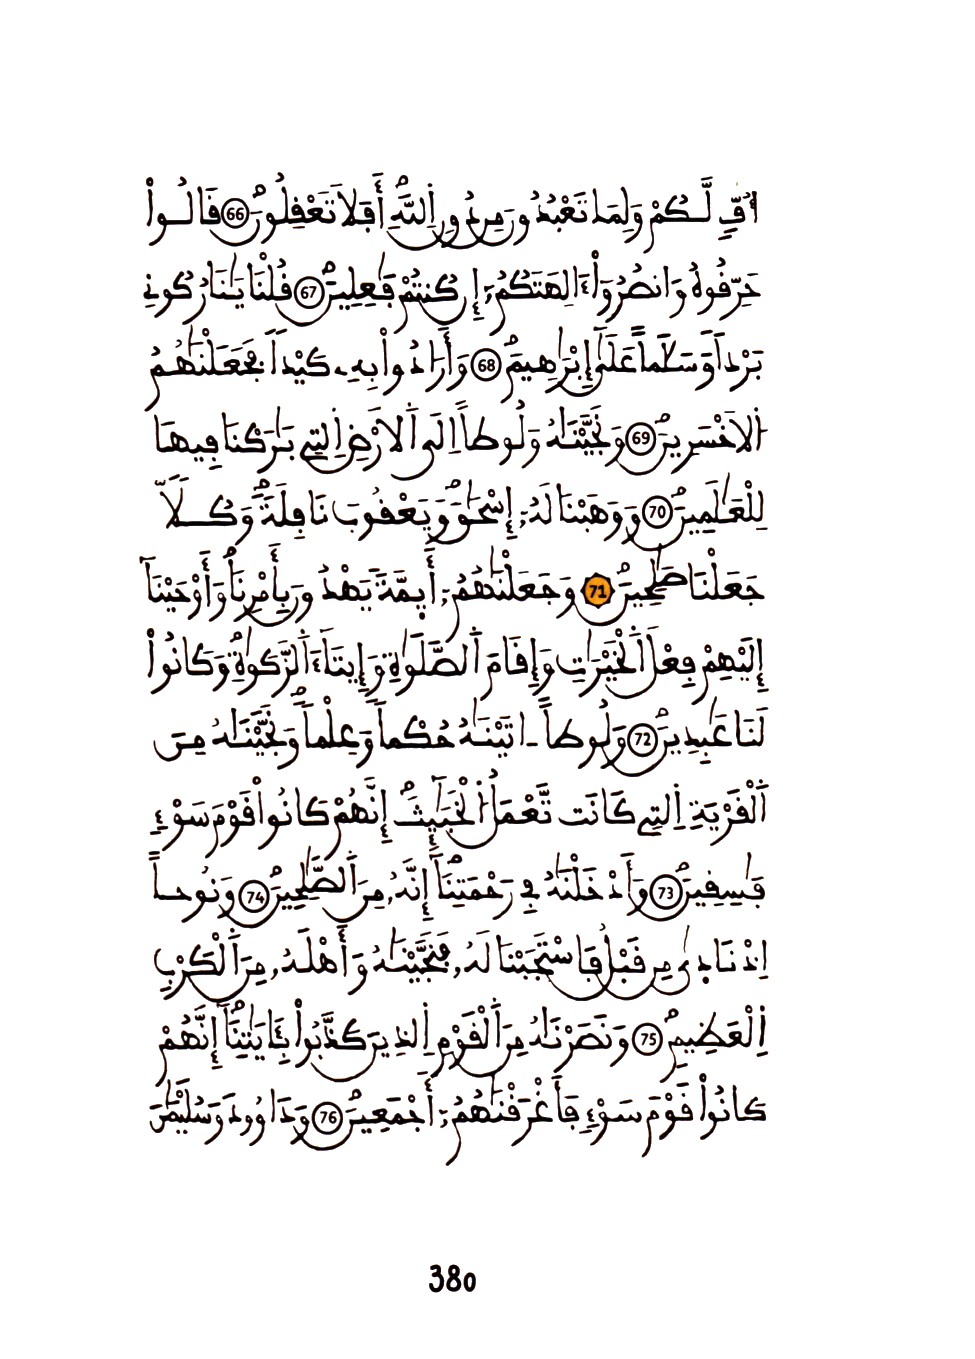 اُفّٖ لَّكُمْ وَلِمَا تَعْبُدُونَ مِن دُونِ اِ۬للَّهِۖ أَفَلَا تَعْقِلُونَۖ 66 قَالُواْ
حَرِّقُوهُ وَانصُرُوٓاْ ءَالِهَتَكُمُۥٓ إِن كُنتُمْ فَٰعِلِينَۖ 67 قُلْنَا يَٰنَارُ كُونِي
بَرْداٗ وَسَلَٰماً عَلَيٰٓ إِبْرَٰهِيمَۖ 68 وَأَرَادُواْ بِهِۦ كَيْداٗ فَجَعَلْنَٰهُمُ
اُ۬لَاخْسَرِينَۖ 69 وَنَجَّيْنَٰهُ وَلُوطاً اِلَى اَ۬لَارْضِ اِ۬لتِي بَٰرَكْنَا فِيهَا
لِلْعَٰلَمِينَۖ 70 وَوَهَبْنَا لَهُۥٓ إِسْحَٰقَ وَيَعْقُوبَ نَافِلَةٗۖ وَكُلّاٗ
جَعَلْنَا صَٰلِحِينَۖ 71 وَجَعَلْنَٰهُمُۥٓ أَيِمَّةٗ يَهْدُونَ بِأَمْرِنَاۖ وَأَوْحَيْنَآ
إِلَيْهِمْ فِعْلَ اَ۬لْخَيْرَٰتِ وَإِقَامَ اَ۬لصَّلَوٰةِ وَإِيتَآءَ اَ۬لزَّكَوٰةِۖ وَكَانُواْ
لَنَا عَٰبِدِينَۖ 72 وَلُوطاً اٰتَيْنَٰهُ حُكْماٗ وَعِلْماٗۖ وَنَجَّيْنَٰهُ مِنَ
اَ۬لْقَرْيَةِ اِ۬لتِي كَانَت تَّعْمَلُ اُ۬لْخَبَٰٓئِثَۖ إِنَّهُمْ كَانُواْ قَوْمَ سَوْءٖ
فَٰسِقِينَۖ 73 وَأَدْخَلْنَٰهُ فِي رَحْمَتِنَآۖ إِنَّهُۥ مِنَ اَ۬لصَّٰلِحِينَۖ 74 وَنُوحاً
اِذْ نَادٜيٰ مِن قَبْلُ فَاسْتَجَبْنَا لَهُۥ فَنَجَّيْنَٰهُ وَأَهْلَهُۥ مِنَ اَ۬لْكَرْبِ
اِ۬لْعَظِيمِۖ 75 وَنَصَرْنَٰهُ مِنَ اَ۬لْقَوْمِ اِ۬لذِينَ كَذَّبُواْ بِـَٔايَٰتِنَآۖ إِنَّهُمْ
كَانُواْ قَوْمَ سَوْءٖ فَأَغْرَقْنَٰهُمُۥٓ أَجْمَعِينَۖ 76 وَدَاوُۥدَ وَسُلَيْمَٰنَ
380